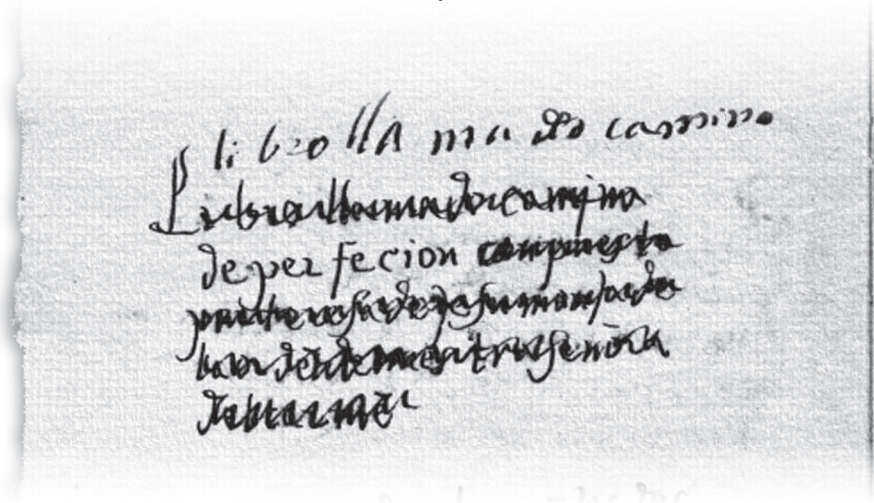 libro llamado camino
Libro llamado camino
de perfecion compuesto
por teresa de jesus monja de
la orden de nuestra señora
del carmen